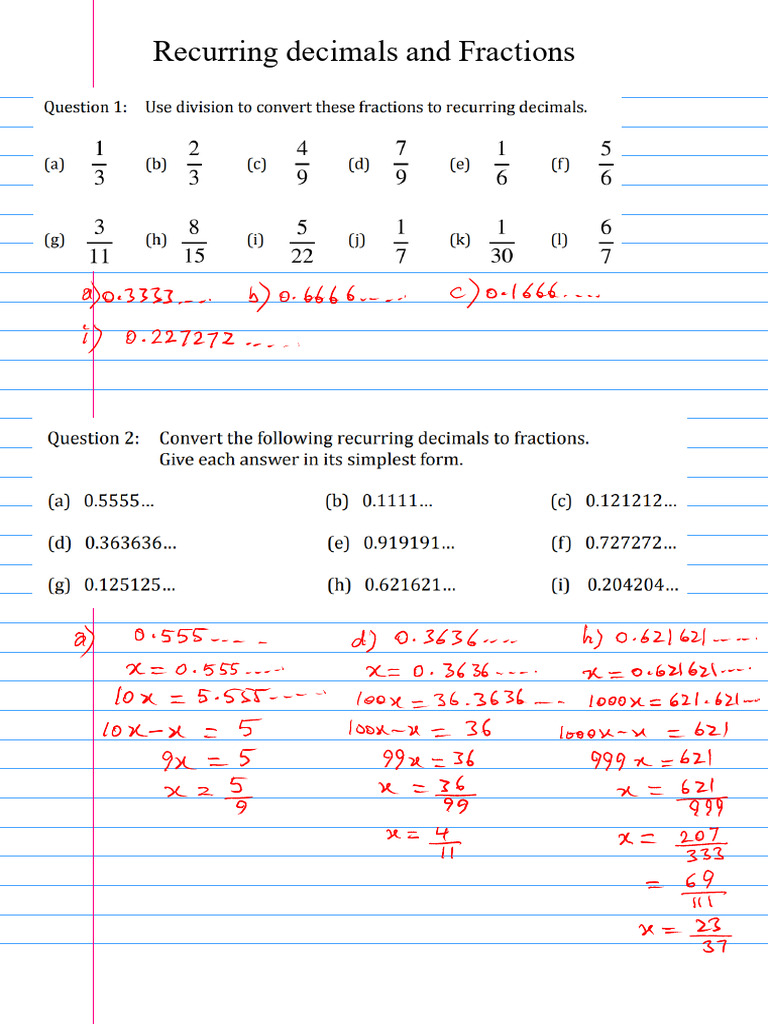 Recurring decimals and Fractions
Question 1: Use division to convert these fractions to recurring decimals.
(a) 1/3 (b) 2/3 (c) 4/9 (d) 7/9 (e) 1/6 (f) 5/6
(g) 3/11 (h) 8/15 (i) 5/22 (j) 1/7 (k) 1/30 (l) 6/7
a) 0.3333.... b) 0.6666..... c) 0.1666.....
i) 0.227272......
Question 2: Convert the following recurring decimals to fractions.
Give each answer in its simplest form.
(a) 0.5555... (b) 0.1111... (c) 0.121212...
(d) 0.363636... (e) 0.919191... (f) 0.727272...
(g) 0.125125... (h) 0.621621... (i) 0.204204...
a) 0.555..... d) 0.3636.... h) 0.621621.....
x = 0.555..... x = 0.3636..... x = 0.621621....
10x = 5.555...... 100x = 36.3636.... 1000x = 621.621...
10x-x = 5 100x-x = 36 1000x-x = 621
9x = 5 99x = 36 999x = 621
x = 5/9 x = 36/99 x = 621/999
x = 4/11 x = 207/333
= 69/111
x = 23/37